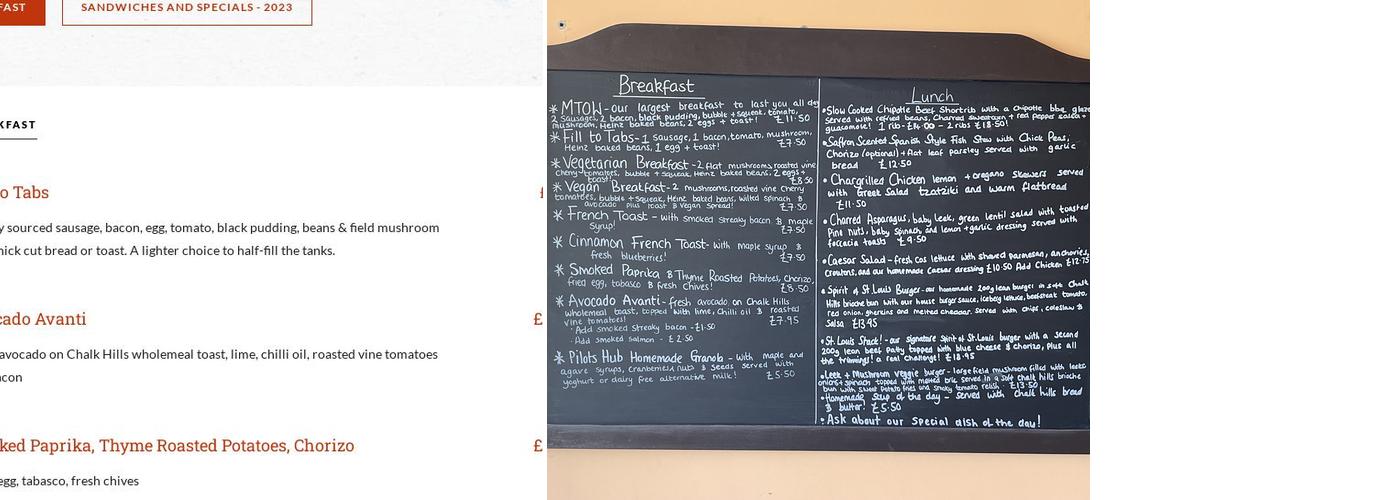 FAST
SANDWICHES AND SPECIALS - 2023
KFAST
o Tabs
y sourced sausage, bacon, egg, tomato, black pudding, beans & field mushroom
hick cut bread or toast. A lighter choice to half-fill the tanks.
cado Avanti
£
avocado on Chalk Hills wholemeal toast, lime, chilli oil, roasted vine tomatoes
acon
ked Paprika, Thyme Roasted Potatoes, Chorizo
£
egg, tabasco, fresh chives
Breakfast
* MTOW - our largest breakfast to last you all day
2 Sausages, 2 bacon, black pudding, bubble + squeak, tomato,
mushroom, Heinz baked beans, 2 eggs + toast! £11.50
* Fill to Tabs - 1 sausage, 1 bacon, tomato, mushroom,
Heinz baked beans, 1 egg + toast! £7.50
* Vegetarian Breakfast - 2 flat mushrooms, roasted vine
cherry tomatoes, bubble + squeak, Heinz baked beans, 2 eggs +
toast! £8.50
* Vegan Breakfast - 2 mushrooms, roasted vine cherry
tomatoes, bubble + squeak, Heinz baked beans, wilted spinach &
avocado plus toast & vegan spread! £7.50
* French Toast - with smoked streaky bacon & maple
syrup! £7.50
* Cinnamon French Toast - with maple syrup &
fresh blueberries! £7.50
* Smoked Paprika & Thyme Roasted Potatoes, Chorizo,
fried egg, tabasco & fresh chives! £8.50
* Avocado Avanti - fresh avocado on Chalk Hills
wholemeal toast, topped with lime, Chilli oil & roasted
vine tomatoes! £7.95
· Add smoked streaky bacon - £1.50
· Add smoked salmon - £2.50
* Pilots Hub Homemade Granola - with maple and
agave syrups, cranberries, nuts & seeds served with
yoghurt or dairy free alternative milk! £5.50
Lunch
• Slow Cooked Chipotle Beef Shortrib with a chipotle bbq glaze
served with refried beans, Charred sweetcorn + red pepper salad +
guacamole! 1 rib - £14.00 - 2 ribs £18.50!
• Saffron Scented Spanish Style Fish Stew with Chick Peas,
Chorizo (optional) + flat leaf parsley served with garlic
bread £12.50
• Chargrilled Chicken lemon + oregano skewers served
with Greek Salad tzatziki and warm flatbread
£11.50
• Charred Asparagus, baby leek, green lentil salad with toasted
Pine nuts, baby spinach and lemon + garlic dressing served with
foccacia toasts £9.50
• Caesar Salad - fresh cos lettuce with shaved parmesan, anchovies,
Croutons, and our homemade Caesar dressing £10.50 Add Chicken £12.75
• Spirit of St. Louis Burger - our homemade 200g lean burger in soft Chalk
Hills brioche bun with our house burger sauce, iceberg lettuce, beefsteak tomato,
red onion, gherkins and melted cheddar. served with chips, coleslaw &
Salsa £13.95
• St. Louis Stack! - our signature Spirit of St. Louis burger with a second
200g lean beef patty topped with blue cheese & chorizo, plus all
the trimmings! a real challenge! £18.95
• Leek + Mushroom veggie burger - large field mushroom filled with leeks
onions + spinach topped with melted brie served in a soft Chalk hills brioche
bun with sweet potato fries and smoky tomato relish £13.50
• Homemade Soup of the day - served with Chalk hills bread
& butter! £5.50
• Ask about our special dish of the day!